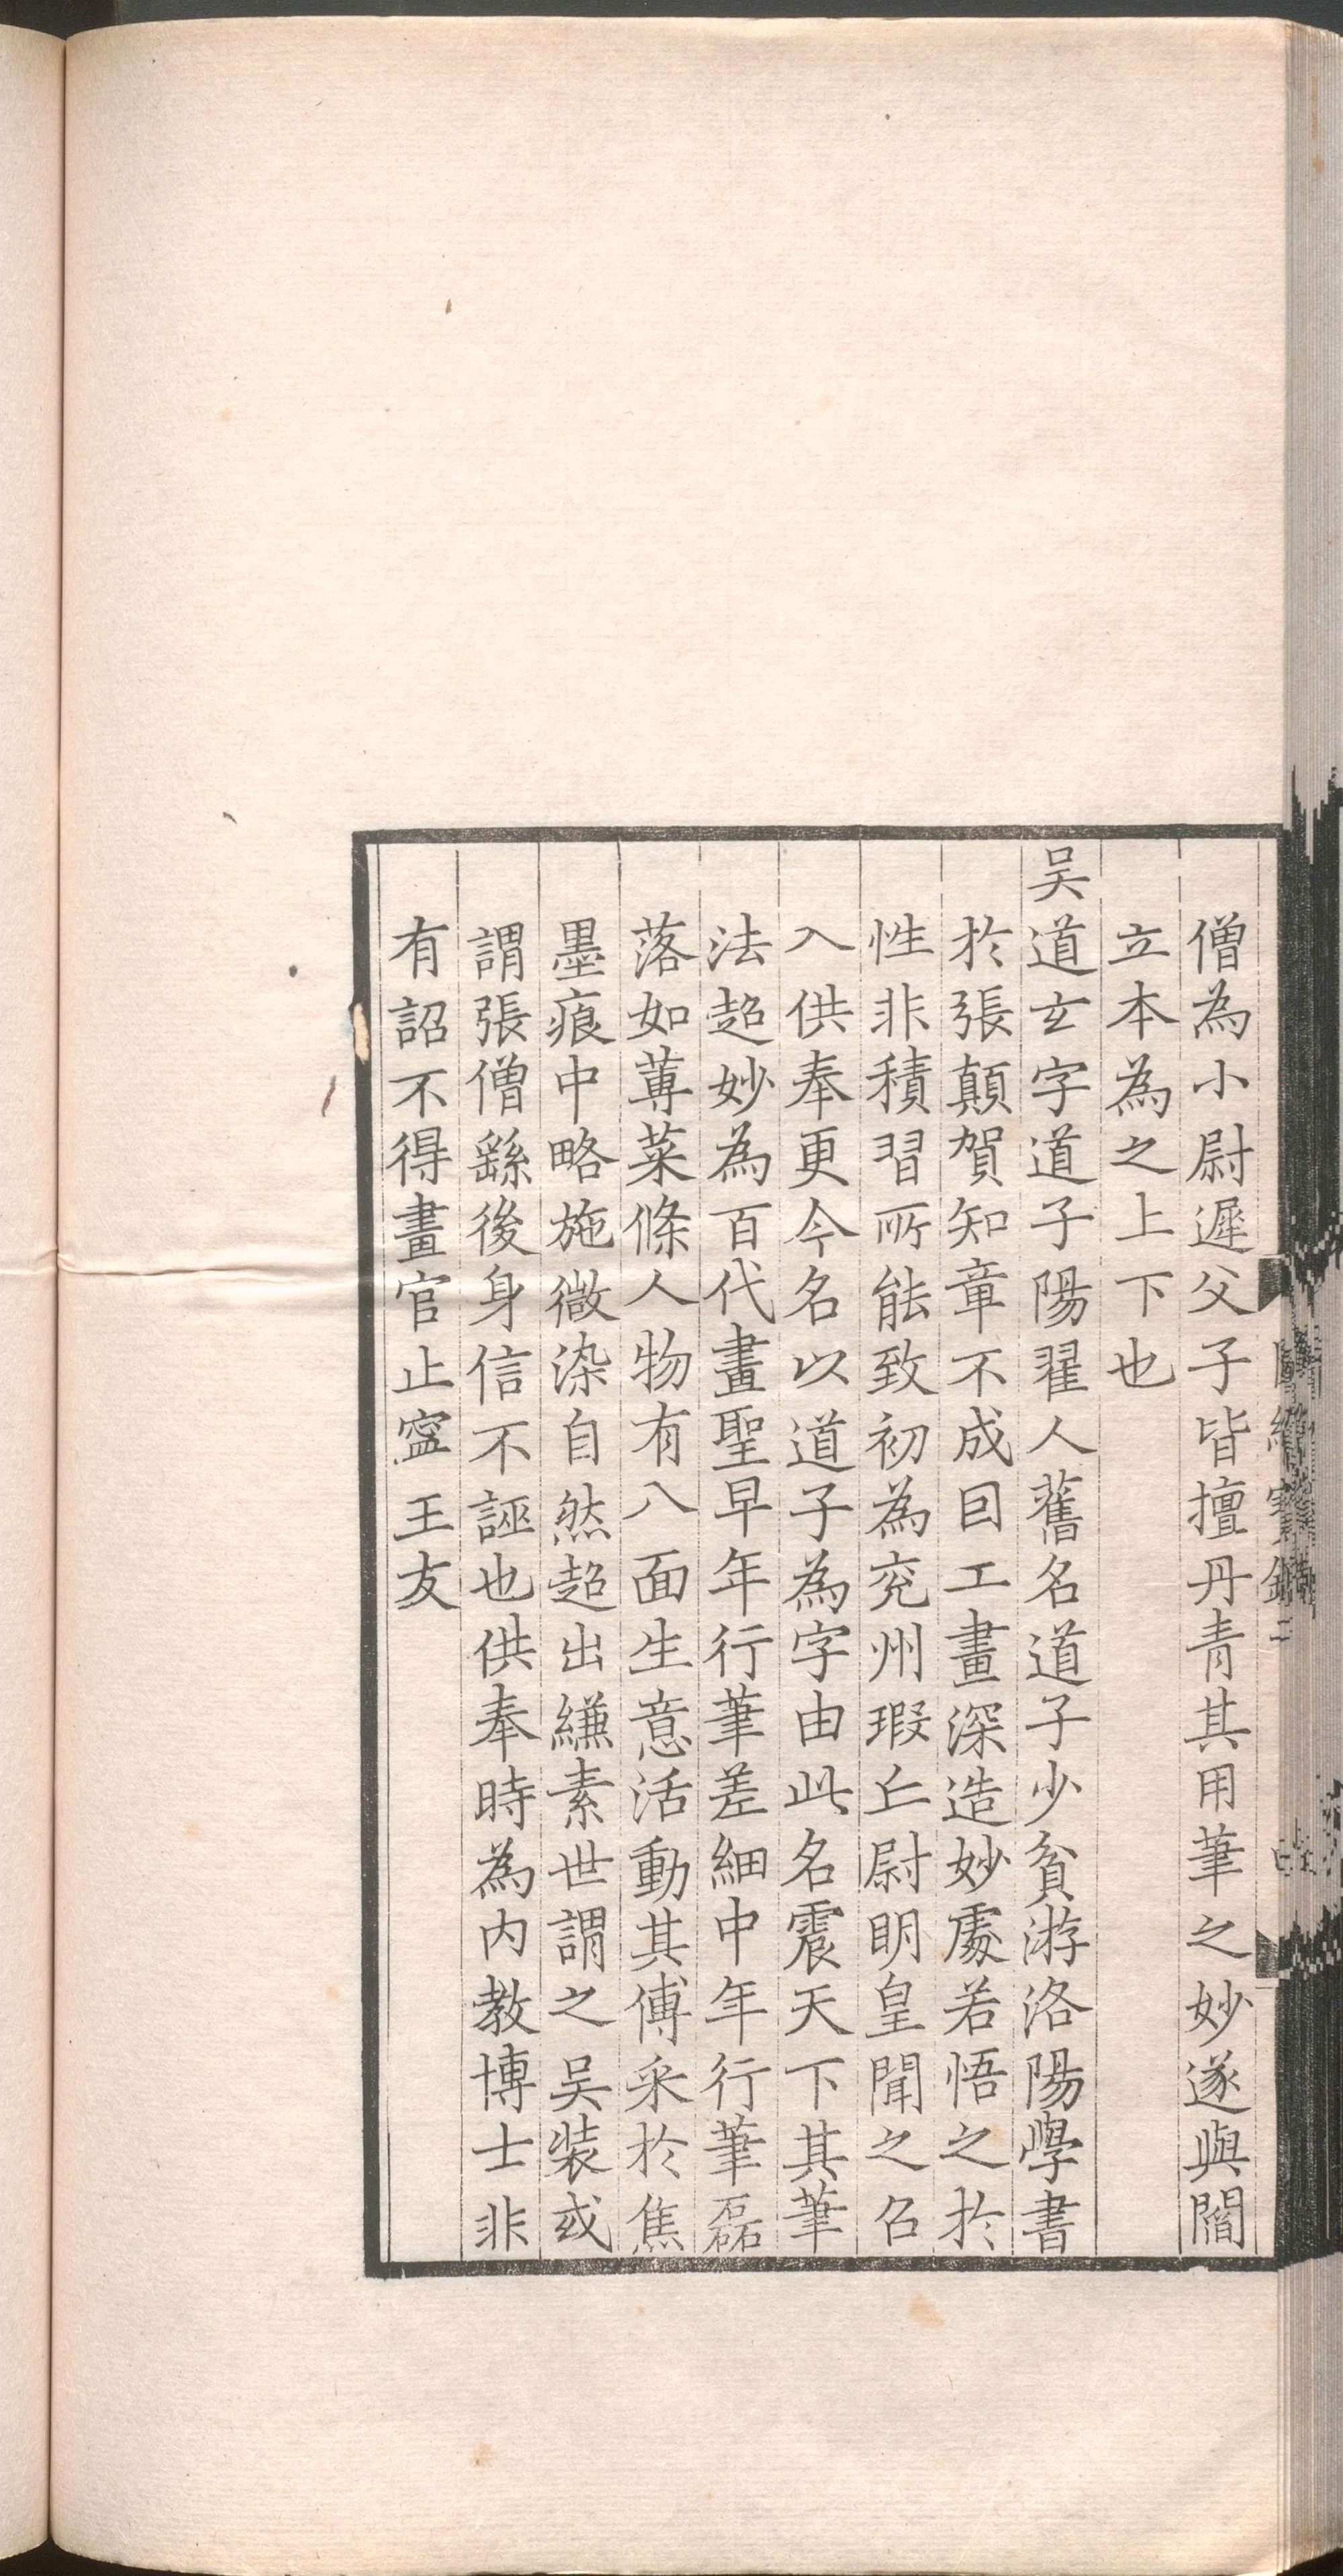 僧為小尉遲父子皆擅丹青其用筆之妙遂與閻
立本為之上下也
吴道玄字道子陽翟人舊名道子少貧游洛陽學書
於張顛賀知章不成囙工畫深造妙處若悟之於
性非積習所能致初為兖州瑕丘尉明皇聞之召
入供奉更今名以道子為字由此名震天下其筆
法超妙為百代畫聖早年行筆差細中年行筆磊
落如蓴菜條人物有八面生意活動其傅采於焦
墨痕中略施微染自然超出縑素世謂之吴装或
謂張僧繇後身信不誣也供奉時為内教博士非
有詔不得畫官止寍王友